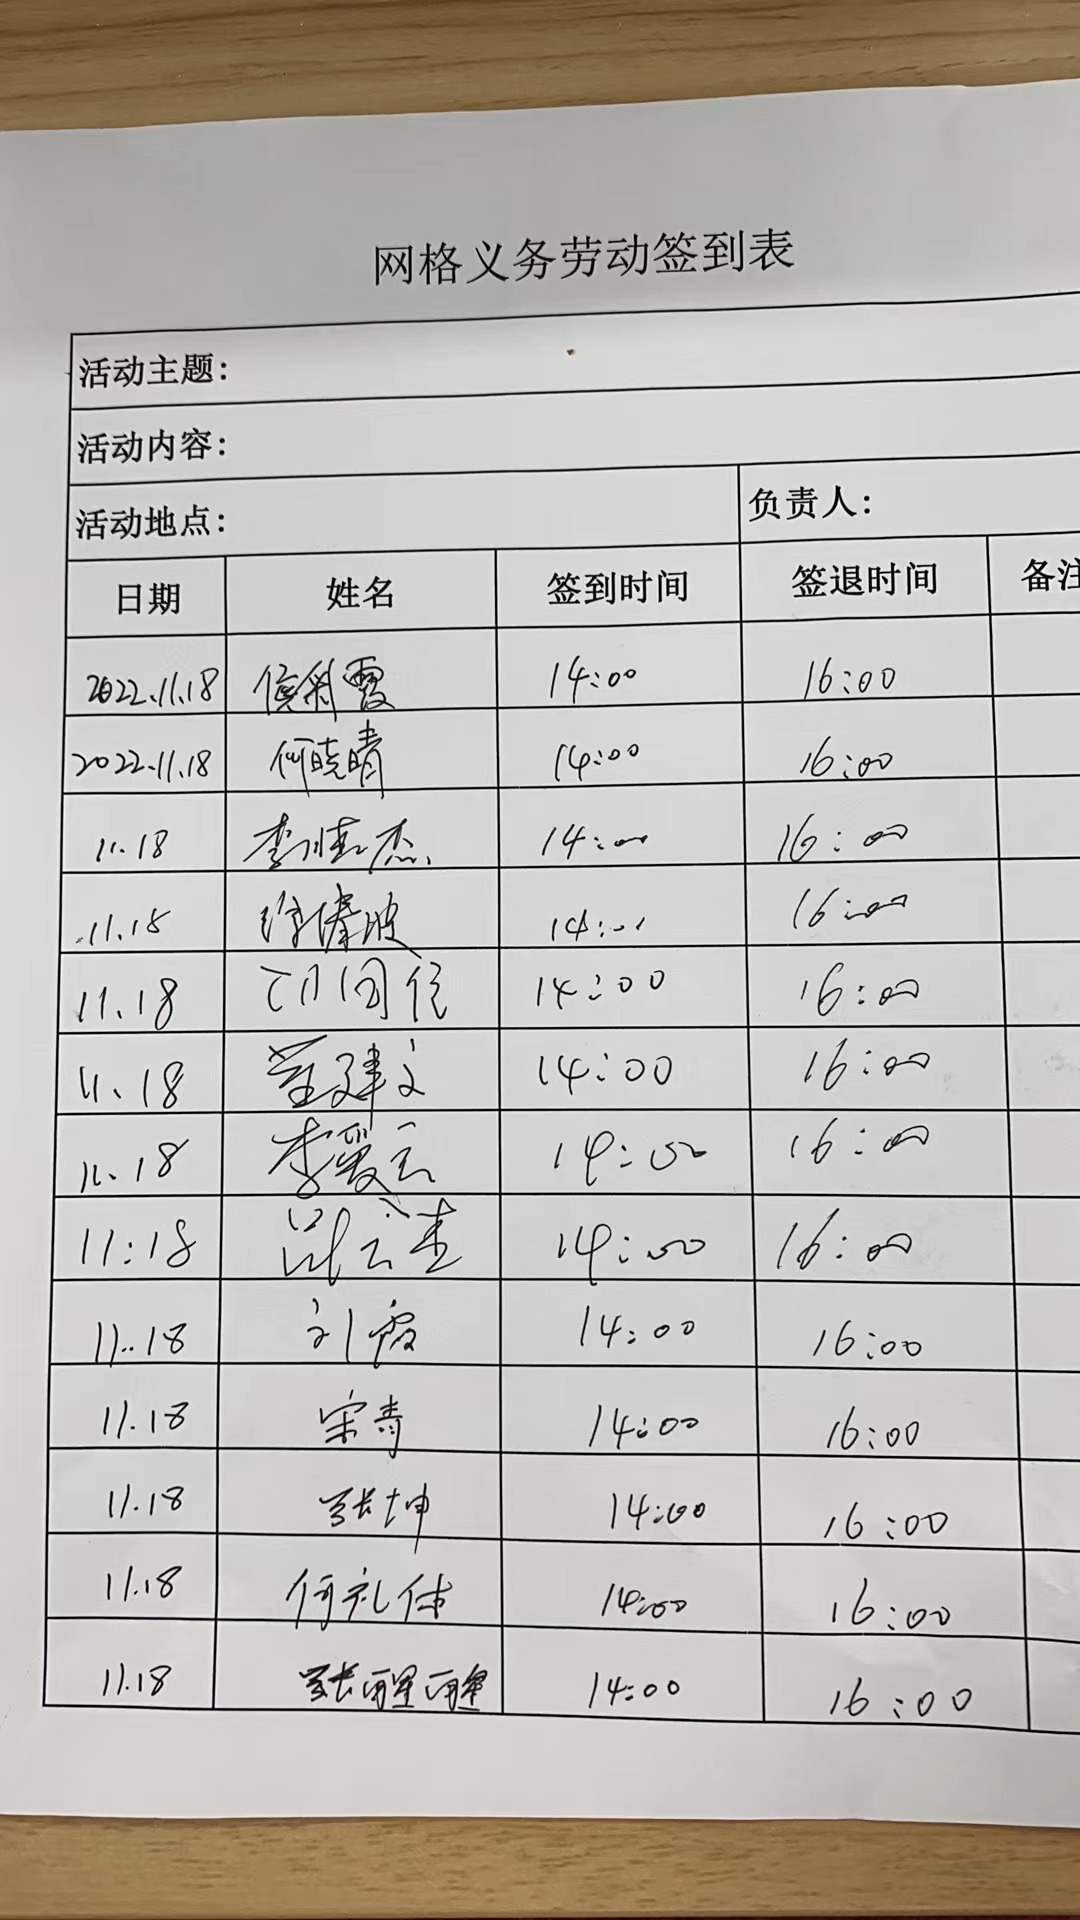 网格义务劳动签到表
活动主题:
活动内容:
活动地点: 负责人:
日期 姓名 签到时间 签退时间 备注
2022.11.18 侯彩霞 14:00 16:00
2022.11.18 何晓晴 14:00 16:00
11.18 李佳杰 14:00 16:00
11.18 14:00 16:00
11.18 14:00 16:00
11.18 董建文 14:00 16:00
11.18 李爱云 14:00 16:00
11:18 14:00 16:00
11.18 刘霞 14:00 16:00
11.18 宋青 14:00 16:00
11.18 张坤 14:00 16:00
11.18 何礼体 14:00 16:00
11.18 14:00 16:00